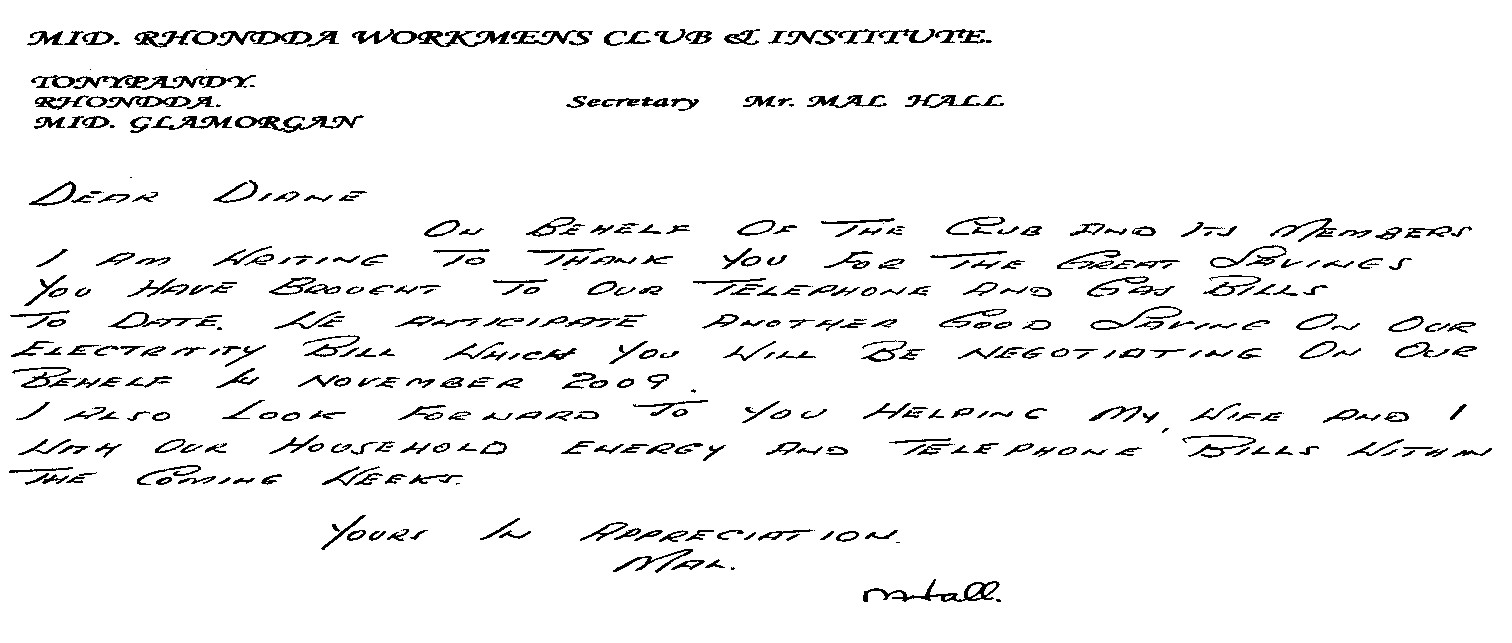 MID. RHONDDA WORKMENS CLUB & INSTITUTE.
TONYPANDY.
RHONDDA. Secretary Mr. MAL HALL
MID. GLAMORGAN
DEAR DIANE
ON BEHELF OF THE CLUB AND ITS MEMBERS
I AM WRITING TO THANK YOU FOR THE GREAT SAVINGS
YOU HAVE BROUGHT TO OUR TELEPHONE AND GAS BILLS
TO DATE. WE ANTICIPATE ANOTHER GOOD SAVING ON OUR
ELECTRITITY BILL WHICH YOU WILL BE NEGOTIATING ON OUR
BEHELF IN NOVEMBER 2009.
I ALSO LOOK FORWARD TO YOU HELPING MY WIFE AND I
WITH OUR HOUSEHOLD ENERGY AND TELEPHONE BILLS WITHIN
THE COMING WEEKS.
YOURS IN APPRECIATION.
MAL.
M Hall.